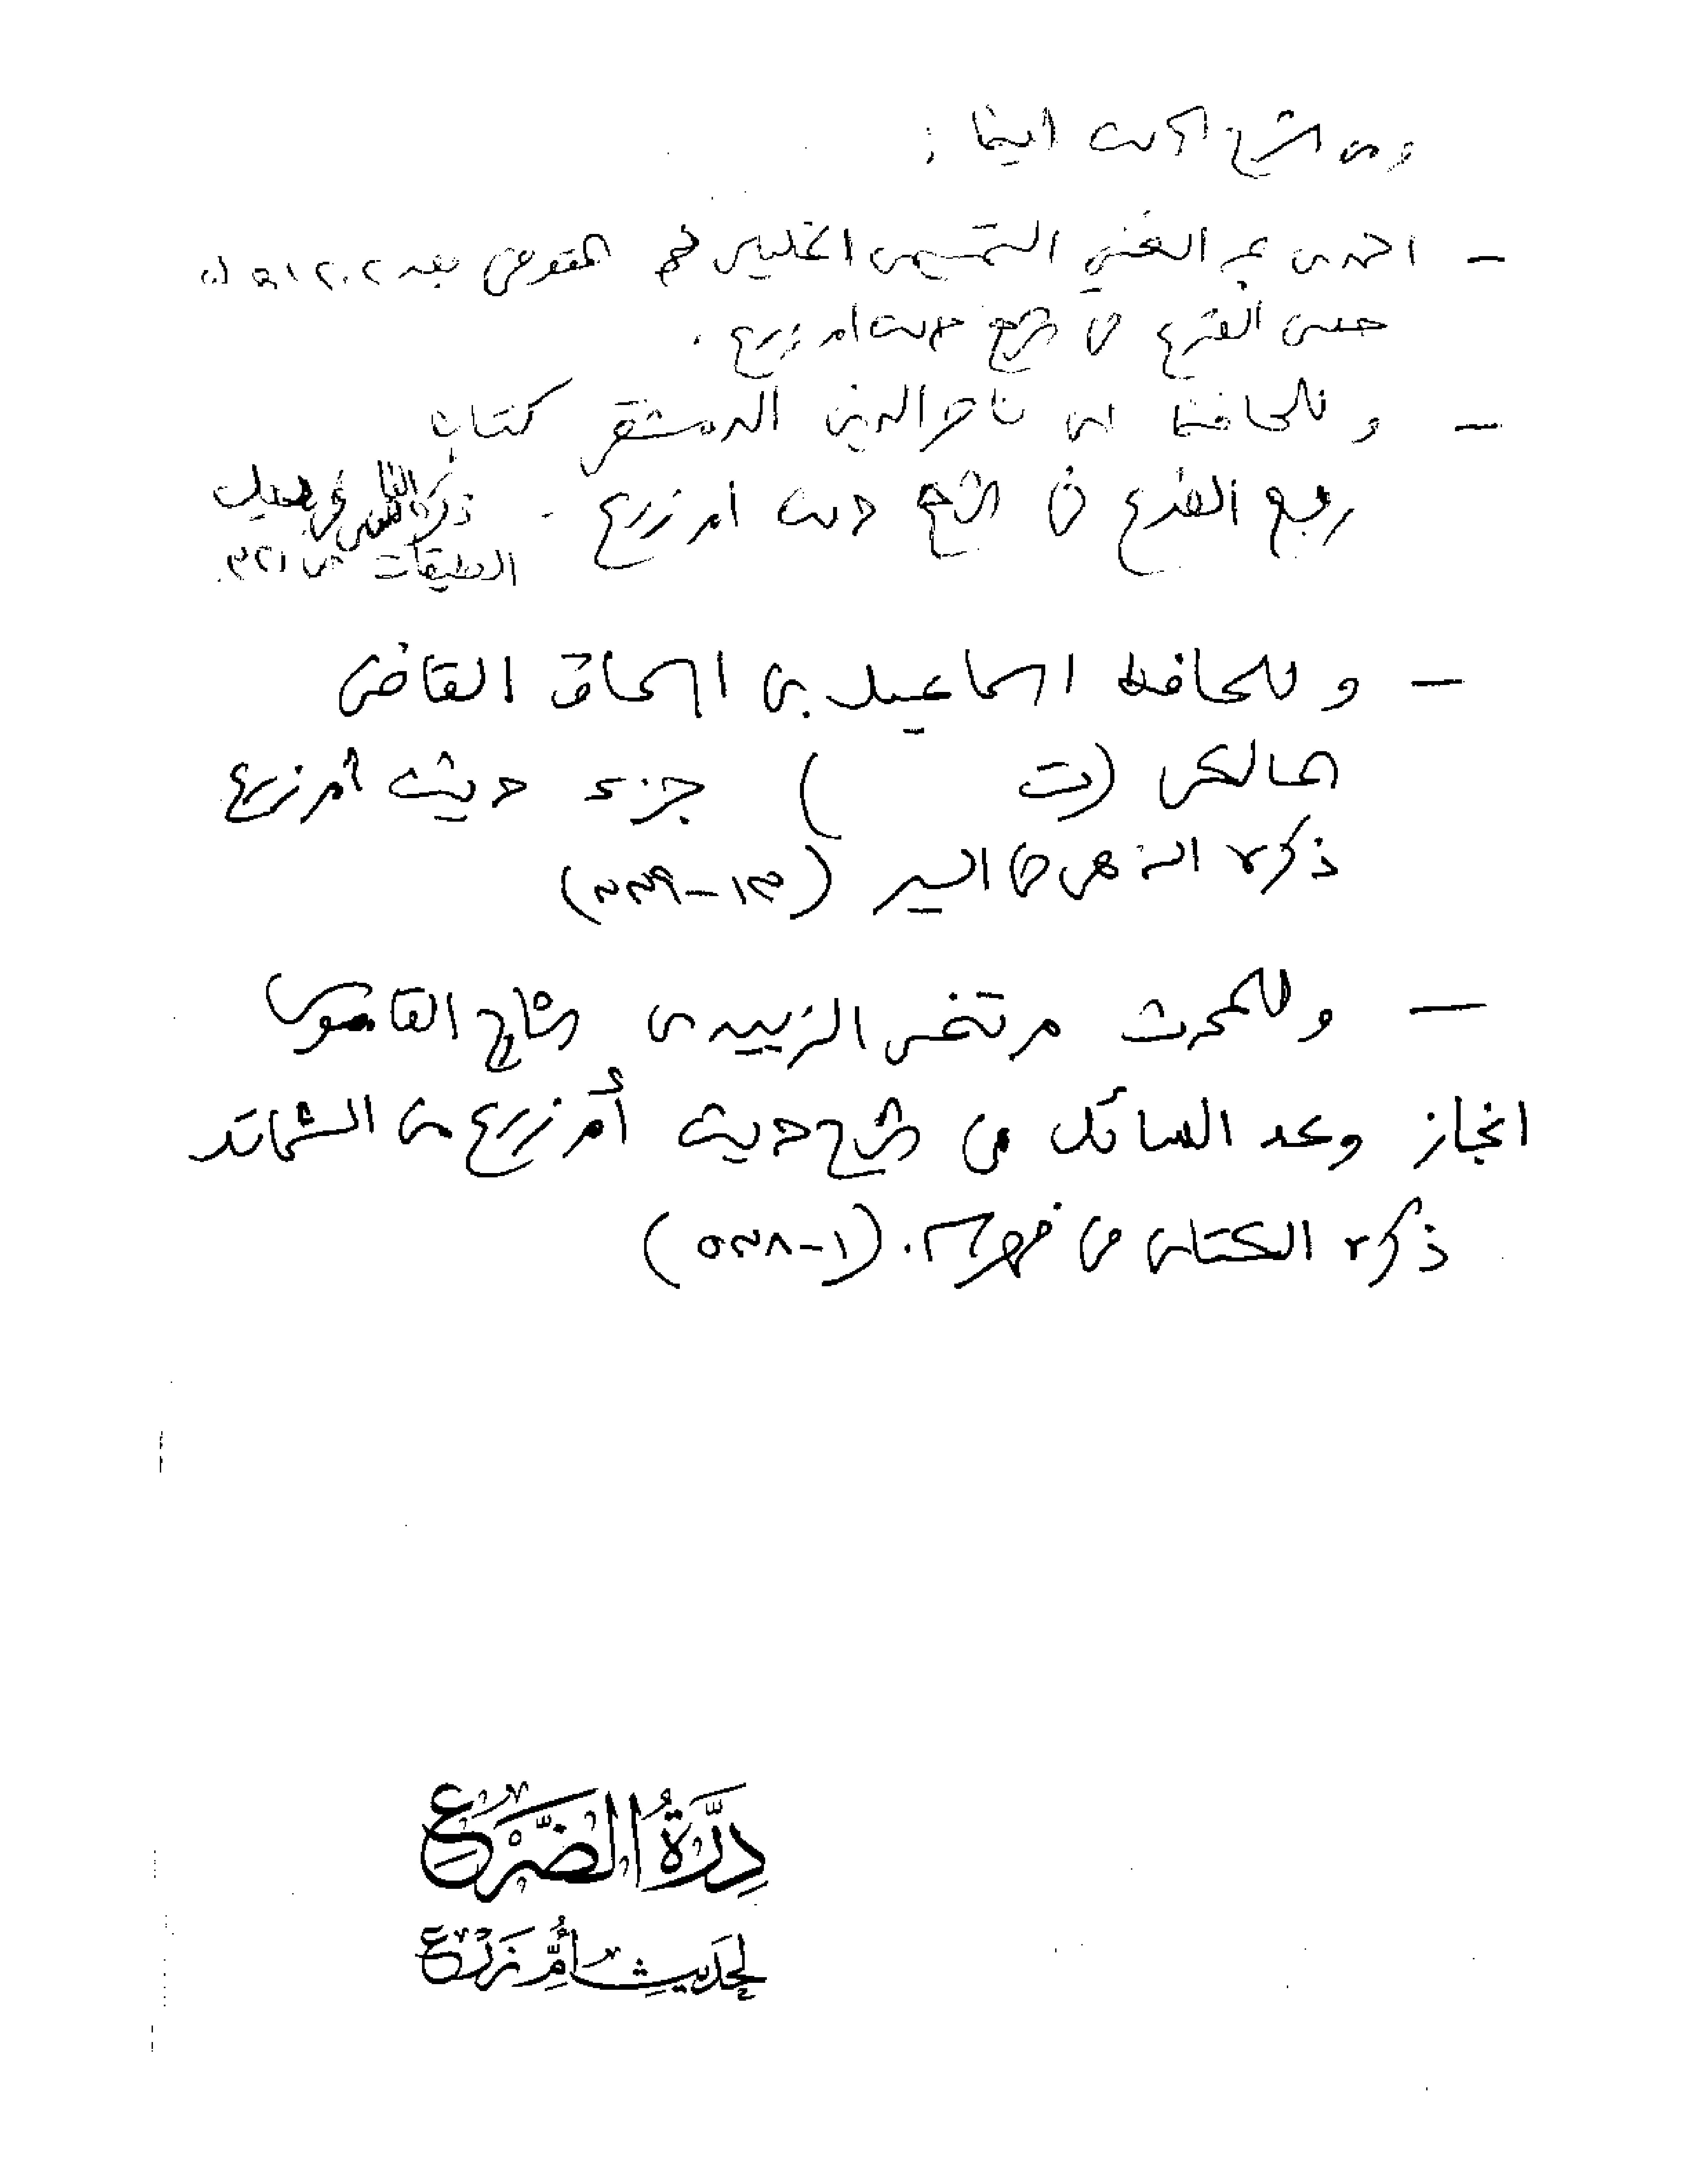 ومن شرح الحديث أيضا :
- احمد بن عبد الغني التميمي الخليلي المتوفى بعد ١٢٠٢ هـ له
حسن القرع في شرح حديث ام زرع .
- وللحافظ ابن ناصر الدين الدمشقي كتاب
ربيع الفرع في شرح حديث ام زرع -
الطبقات ص ٣٢١
- وللحافظ اسماعيل بن اسحاق القاضي
المالكي (ت ) جزء حديث أم زرع
ذكره الذهبي في السير (١٣-٣٣٩)
- وللمحدث مرتضى الزبيدي شارح القاموس
انجاز وعد السائل في شرح حديث أم زرع من الشمائل
ذكره الكتاني في فهرسه . (١-٥٣٨)
دِرَّةُ الضَّرْعِ
لِحَدِيثِ أُمِّ زَرْعٍ